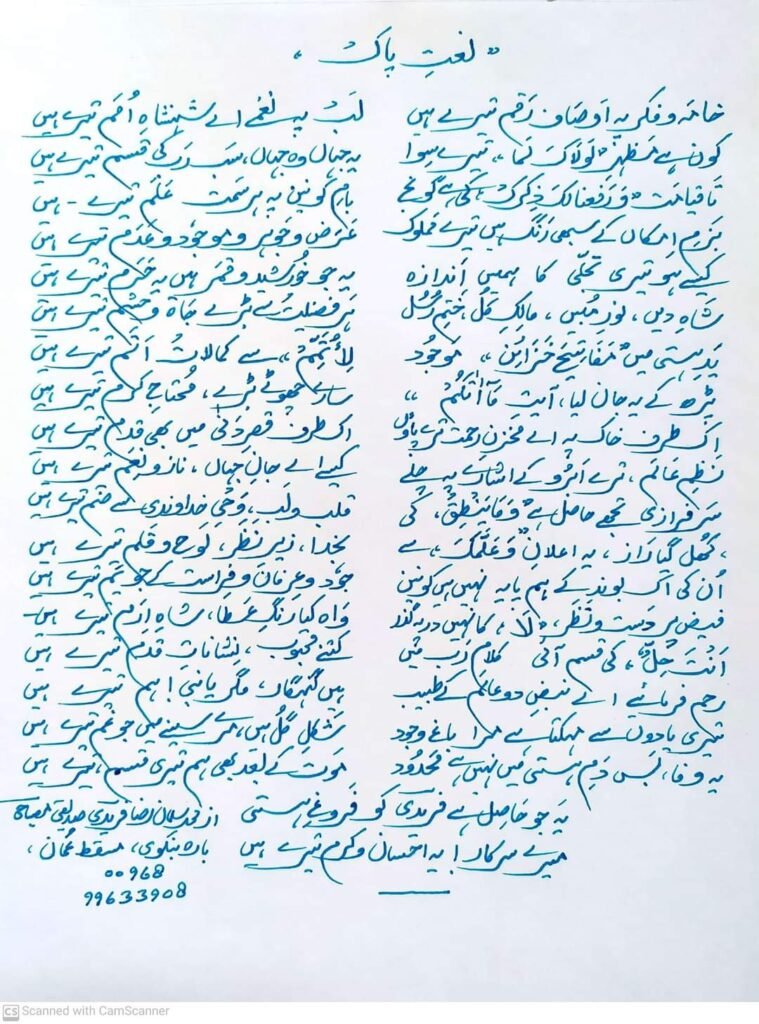 ”نعتِ پاک“
خامہ و فکر پہ اوصاف رقم تیرے ہیں لب پہ نغمے اے شہنشاہِ اُمم تیرے ہیں
کون ہے مظہرِ ”لولاک لما“، تیرے سوا یہ جہاں وہ جہاں، سب رب کی قسم تیرے ہیں
تا قیامت ”وَرَفعنالک ذِکرک“، کی ہے گونج بامِ کونین پہ ہر سمت عَلَم تیرے ہیں
بزمِ امکاں کے سبھی رنگ ہیں تیرے مملوک عَرَض و جوہر و موجود و عدم تیرے ہیں
کیسے ہو تیری تجلّی کا ہمیں اندازہ یہ جو خورشید و قمر ہیں یہ خَدَم تیرے ہیں
شاہِ دیں، نورِ مبیں، مالکِ کُل، ختمِ رُسُل ہر فضیلت سے بڑے جاہ و حشم تیرے ہیں
یَدِ ہستی میں ”مفاتیح خزائن“، موجود لِاُتَمِّمَ“، سے کمالات اَتم تیرے ہیں
پڑھ کے یہ جان لیا، آیتِ مَآ اٰتٰکُمْ“ سارے چھوٹے بڑے، محتاجِ کرم تیرے ہیں
اک طرف خاک پہ اے مخزنِ رحمت ترے پاؤں اک طرف قصرِ دَنٰی میں بھی قدم تیرے ہیں
نظمِ عالم، ترے ابرو کے اشارے پہ چلے کیسے اے جانِ جہاں، ناز و نِعَم تیرے ہیں
سرفرازی تجھے حاصل ہے ”وَمَا یَنْطِقُ“، کی قلب و لب، وحیِ خداوندی سے ضم تیرے ہیں
کُھل گیا راز، یہ اعلانِ ”وَعَلَّمَکَ“، سے بخدا، زیرِ نظر، لوح و قلم تیرے ہیں
اُن کی اک بوند کے ہم پایہ نہیں ہیں کونین جود و عرفان و فراست کے جو یَم تیرے ہیں
فیض بر دست و نظر، ”لا“، کا نہیں در پہ گذر واہ کیا رنگِ عطا، شاہِ اِرَم تیرے ہیں
اَنْتَ حِلٌّ“، کی قسم آئی کلامِ رب میں کتنے محبوب، نشاناتِ قدم تیرے ہیں
رحم فرمائیے اے نبضِ دو عالم کے طبیب ہیں گنہگار، مگر یا نبی! ہم تیرے ہیں
تیری یادوں سے مہکتا ہے مرا باغِ وجود شکلِ گُل ہیں، مرے سینے میں جو غم تیرے ہیں
یہ وفا، بس دَمِ ہستی میں نہیں ہے محدود موت کے بعد بھی ہم تیری قسم، تیرے ہیں
یہ جو حاصل ہے فریدی کو فروغِ ہستی
میرے سرکار! یہ احسان و کرم تیرے ہیں
از محمد سلمان رضا فریدی صدیقی مصباحی
بارہ بنکوی، مسقط عُمان،
00968
99633908
CS Scanned with CamScanner